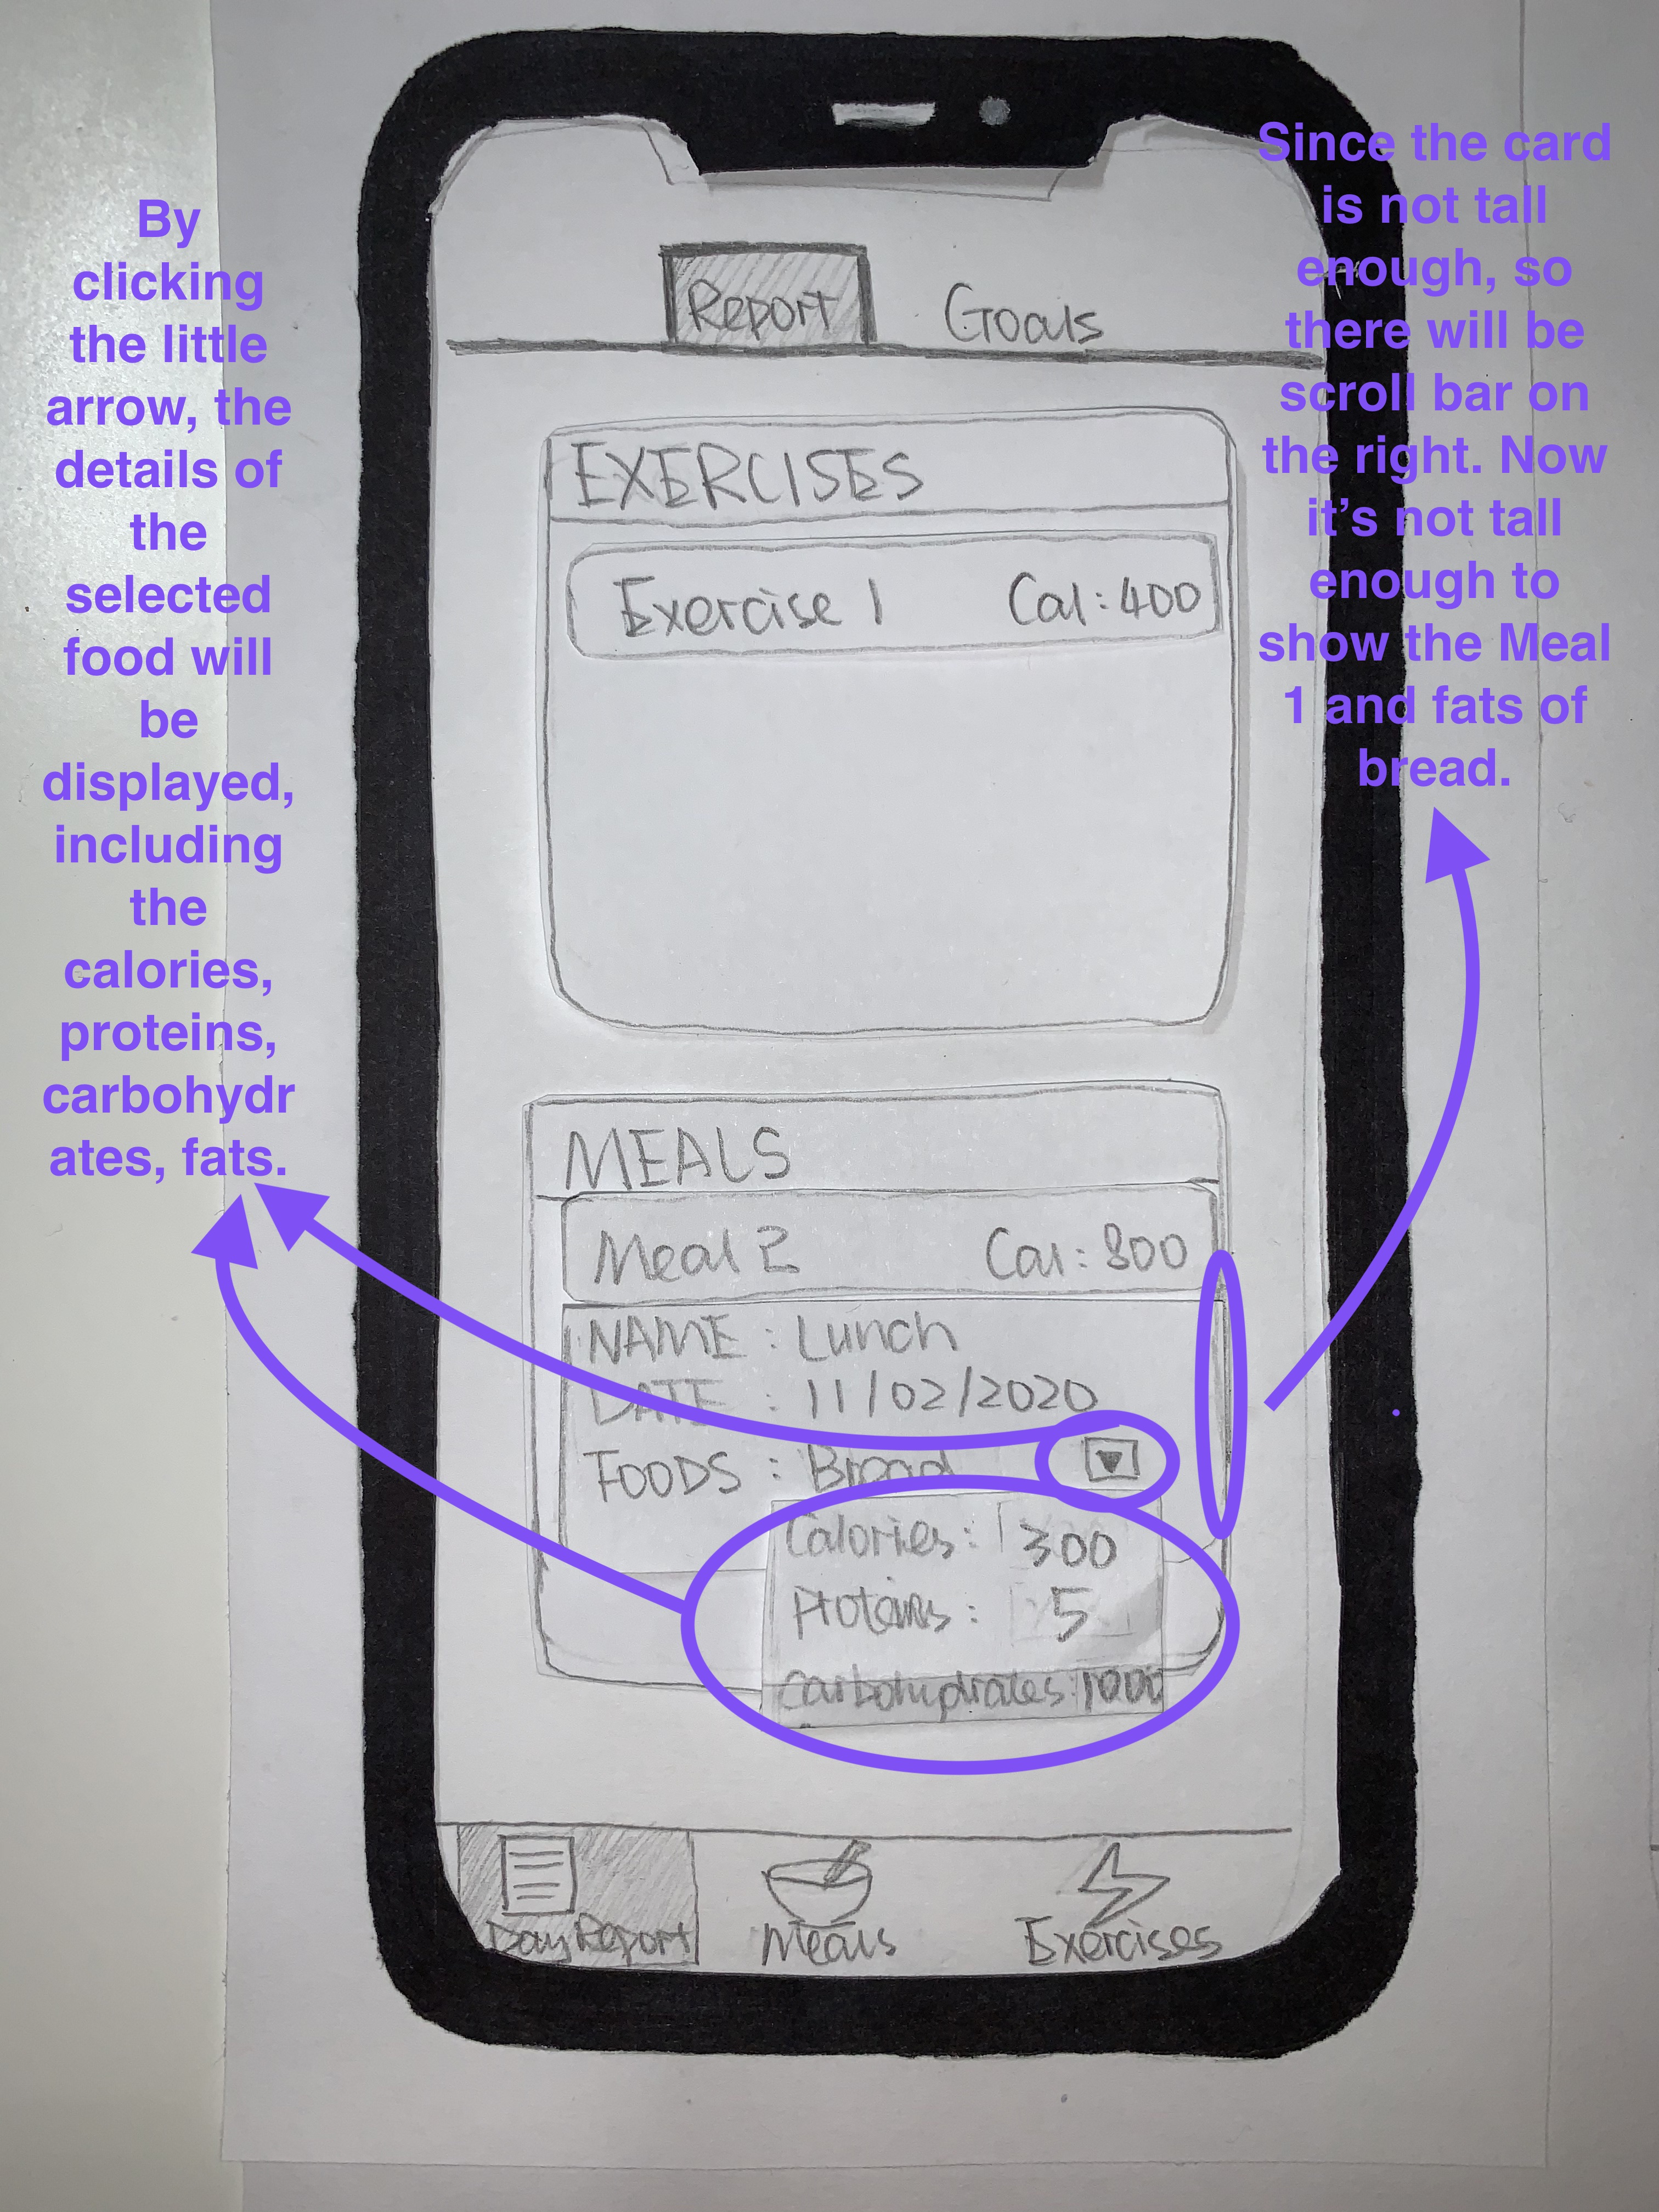 By
clicking
the little
arrow, the
details of
the
selected
food will
be
displayed,
including
the
calories,
proteins,
carbohydr
ates, fats.
Since the card
is not tall
enough, so
there will be
scroll bar on
the right. Now
it’s not tall
enough to
show the Meal
1 and fats of
bread.
Report Goals
EXERCISES
Exercise 1 Cal:400
MEALS
Meal 2 Cal: 800
NAME : Lunch
DATE : 11/02/2020
FOODS : Bread
Calories: 300
Proteins: 5
Carbohydrates: 1000
Day Report Meals Exercises